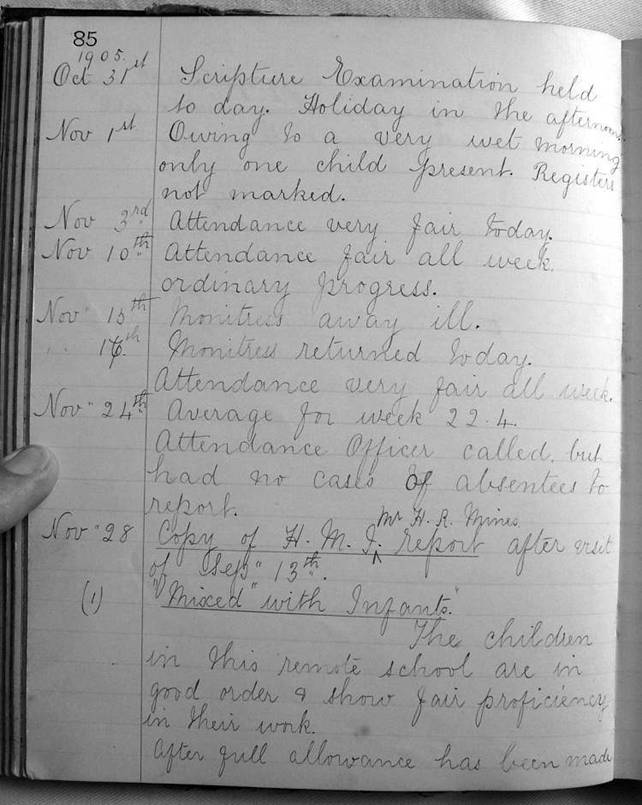 85
1905.
Oct 31st Scripture Examination held
to day. Holiday in the afternoon.
Nov 1st Owing to a very wet morning
only one child present. Registers
not marked.
Nov 3rd Attendance very fair today.
Nov 10th Attendance fair all week.
ordinary progress.
Nov" 15th Monitress away ill.
" " 17th Monitress returned today.
Attendance very fair all week.
Nov" 24th Average for week 22.4.
Attendance Officer called, but
had no cases of absentees to
report.
Mr H. R. Mines
Nov" 28 Copy of H. M. I. ^ report after visit
of Sep" 13th.
(1) "Mixed" with Infants."
The children
in this remote school are in
good order & show fair proficiency
in their work.
After full allowance has been made